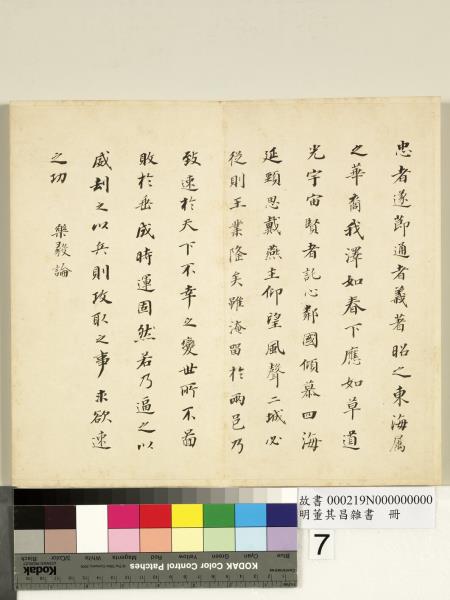 忠者遂節通者義著昭之東海屬
之華裔我澤如春下應如草道
光宇宙賢者託心鄰國傾慕四海
延頸思戴燕主仰望風聲二城必
從則王業隆矣雖淹留於兩邑乃
致速於天下不幸之變世所不啚
敗於垂成時運固然若乃逼之以
威劫之以兵則攻取之事求欲速
之功　樂毅論
故書 000219N000000000
明董其昌雜書　冊
7
Blue Cyan Green Yellow Red Magenta White 3/Color Black
Kodak KODAK Color Control Patches